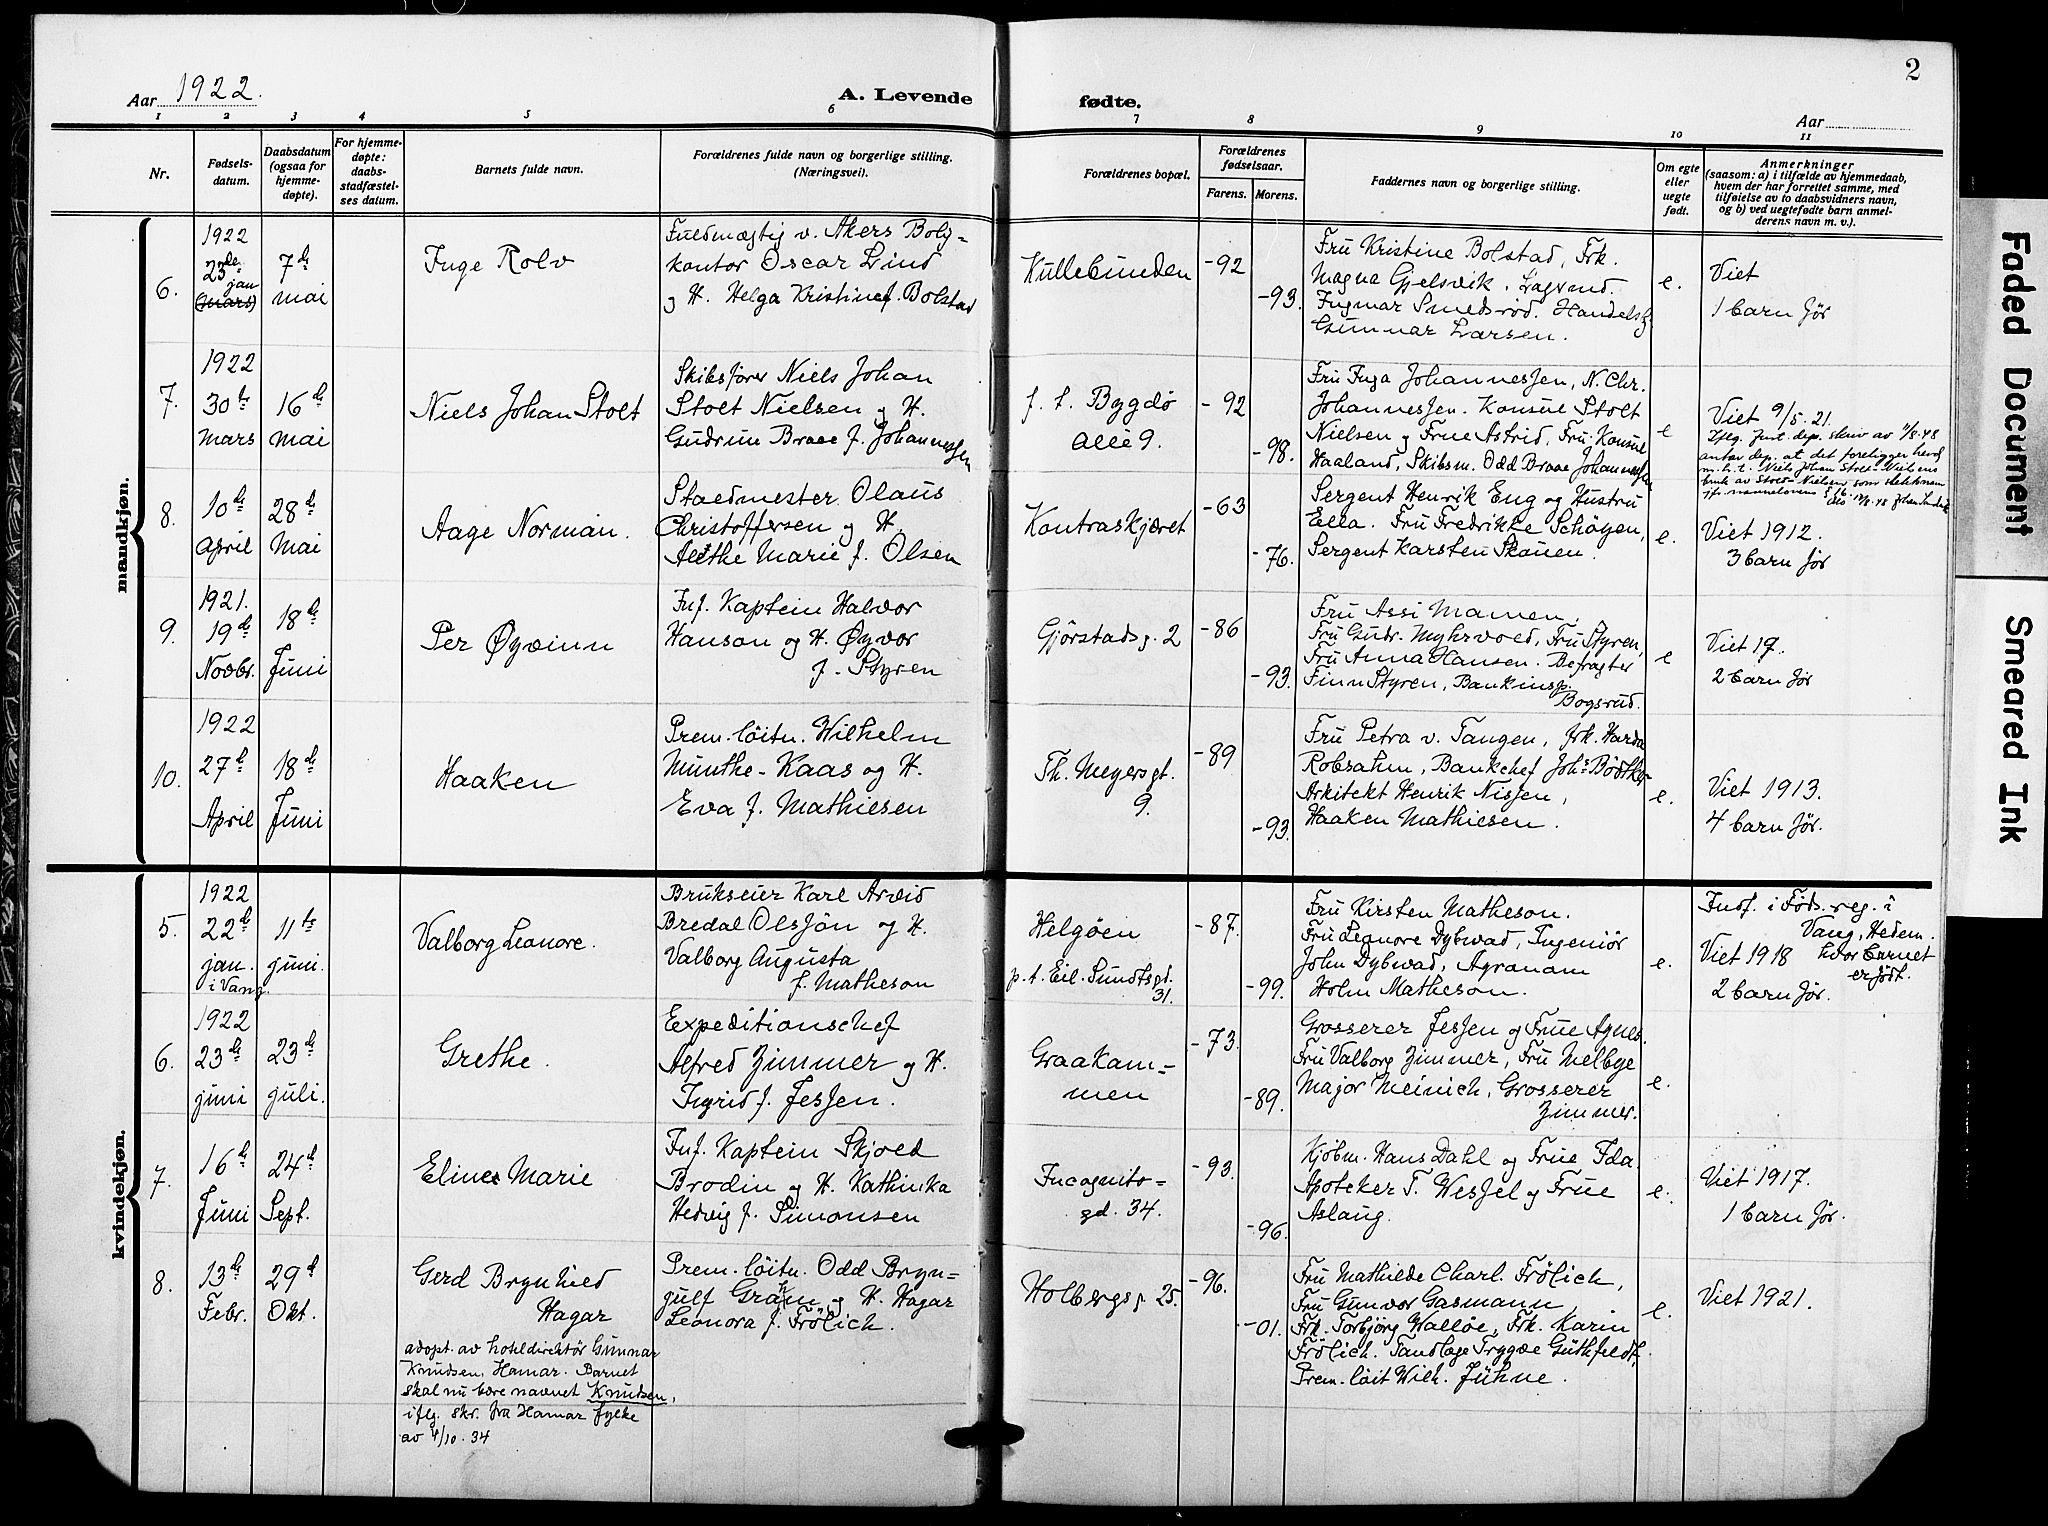 2
Aar 1922.
A. Levende fødte.
Aar
1 2 3 4 5 6 7 8 9 10 11
Nr.
Fødsels-
datum.
Daabsdatum
(ogsaa for
hjemme-
døpte).
For hjemme-
døpte:
daabs-
stadfæstel-
ses datum.
Barnets fulde navn.
Forældrenes fulde navn og borgerlige stilling.
(Næringsvei).
Forældrenes bopæl.
Forældrenes
fødselsaar.
Farens. Morens.
Faddernes navn og borgerlige stilling.
Om egte
eller
uegte
født.
Anmerkninger
(saasom: a) i tilfælde av hjemmedaab,
hvem der har forrettet samme, med
tilføielse av to daabsvidners navn,
og b) ved uegtefødte barn anmel-
derens navn m. v.).
mandkjøn.
6.
1922
23de
jan
(mars)
7de
mai
Inge Rolv
Fuldmægtig v. Akers Bolg=
kontor Oscar Lind
og H. Helga Kristine f. Bolstad
Kullebunden
-92
-93.
Fru Kristine Bolstad, Frk.
Magna Gjelsvik. Lagerind.
Ingmar Smedsrød. Handelsg
Gunnar Larsen.
e.
Viet
1 barn før
7.
1922
30te
Mars
16de
mai
Niels Johan Stolt
Skibsfører Niels Johan
Stolt Nielsen og H.
Gudrun Braae f. Johannessen
f. t. Bygdø
alle 9.
-92
-98.
Fru Inga Johannessen, N. Chr.
Johannessen. Konsul Stolt
Nielsen og Frue Astrid. Fru Konsul
Haaland, Skibsm. Odd Braae Johannessen
e
Viet 9/5. 21.
Iflg. Just. dep. skriv av 11/8.48
antar dep. at det foreligger hevd
m.h.t. Niels Johan Stolt-Nielsens
bruk av Stolt-Nielsen som slektsnavn
jfr. navnelovens § 16.
8.
10de
April
28de
Mai
Aage Norman.
Staldmester Olaus
Christoffersen og H.
Alethe Marie f. Olsen
Kontraskjæret
-63
-76.
Sergent Henrik Eng og Hustru
Ella. Fru Fredrikke Schøyen,
Sergent Karsten Skauen.
e.
Viet 1912.
3 barn før
9.
1921.
19de
Novbr.
18de
Juni
Per Øyvinn
Inf. Kaptein Halvor
Hanson og H. Øyvor
f. Styren
Gjørstadsg. 2
-86
-93.
Fru Assi Mamen,
Fru Gudr. Myhrvold, Fru Styren,
Fru Anna Hansen. Befragter
Finn Styren, Bankinsp.
Bogsrud.
e
Viet 17.
2 barn før
10.
1922
27de
April
18de
Juni
Haaken
Prem. løitn. Wilhelm
Munthe-Kaas og H.
Eva f. Mathiesen
Th. Meyersgt.
9.
-89
-93.
Fru Petra v. Tangen, frk. Harda
Robsahm, Bankchef Johs. Bødtker
Arkitekt Henrik Nissen,
Haaken Mathiesen.
e.
Viet 1913.
4 barn før.
kvindekjøn.
5.
1922
22de
jan.
i Vang.
11te
juni.
Valborg Leonore.
Brukseier Karl Arvid
Bredal Olsson og H.
Valborg Augusta
f. Matheson
Helgøen
p.t. Eil. Sundtsgd.
31.
-87.
-99.
Fru Kirsten Matheson.
Fru Leonore Dybwad, Ingeniør
John Dybwad, Agronom
Holm Matheson.
e.
Indf. i Føds. reg. i
Vang, Hedem.
hvor barnet
er født.
Viet 1918
2 barn før.
6.
1922
23de
juni
23de
juli.
Grethe.
Expeditionschef
Alfred Zimmer og H.
Ingrid f. Jessen.
Graakam=
men
-73.
-89.
Grosserer Jessen og Frue Agnes.
Fru Valborg Zimmer, Fru Melbye
Major Meinich, Grosserer
Zimmer.
e.
7.
16de
Juni
24de
Sept.
Eline Marie
Inf. Kaptein Skjold
Brodin og H. Kathinka
Hedvig f. Simonsen
Incognito=
gd. 34.
-93.
-96.
Kjøbm. Hans Dahl og Frue Ida.
Apoteker T. Wessel og Frue
Aslaug.
e.
Viet 1917.
1 barn før.
8.
13de
Febr.
29de
Okt.
Gerd Brynhild
Hagar
Prem. løitn. Odd Bryn=
julf Grahn og H. Hagar
Leonora f. Frölich.
Holbergsg 25.
-96.
-01.
Fru Mathilde Charl. Frölich,
Fru Gunvor Gasmann
Frk. Torbjørg Walløe, Frk. Karin
Frölich. Tandlæge Trygve Guthfeldt,
Prem. løit Wilh. Jühne.
e.
Viet 1921.
adopt. av hotelldirektør Gunnar
Knudsen, Hamar. Barnet
skal nu bære navnet Knudsen,
iflg. skr. fra Hamar fylke
av 4/10. 34
Faded Document
Smeared Ink